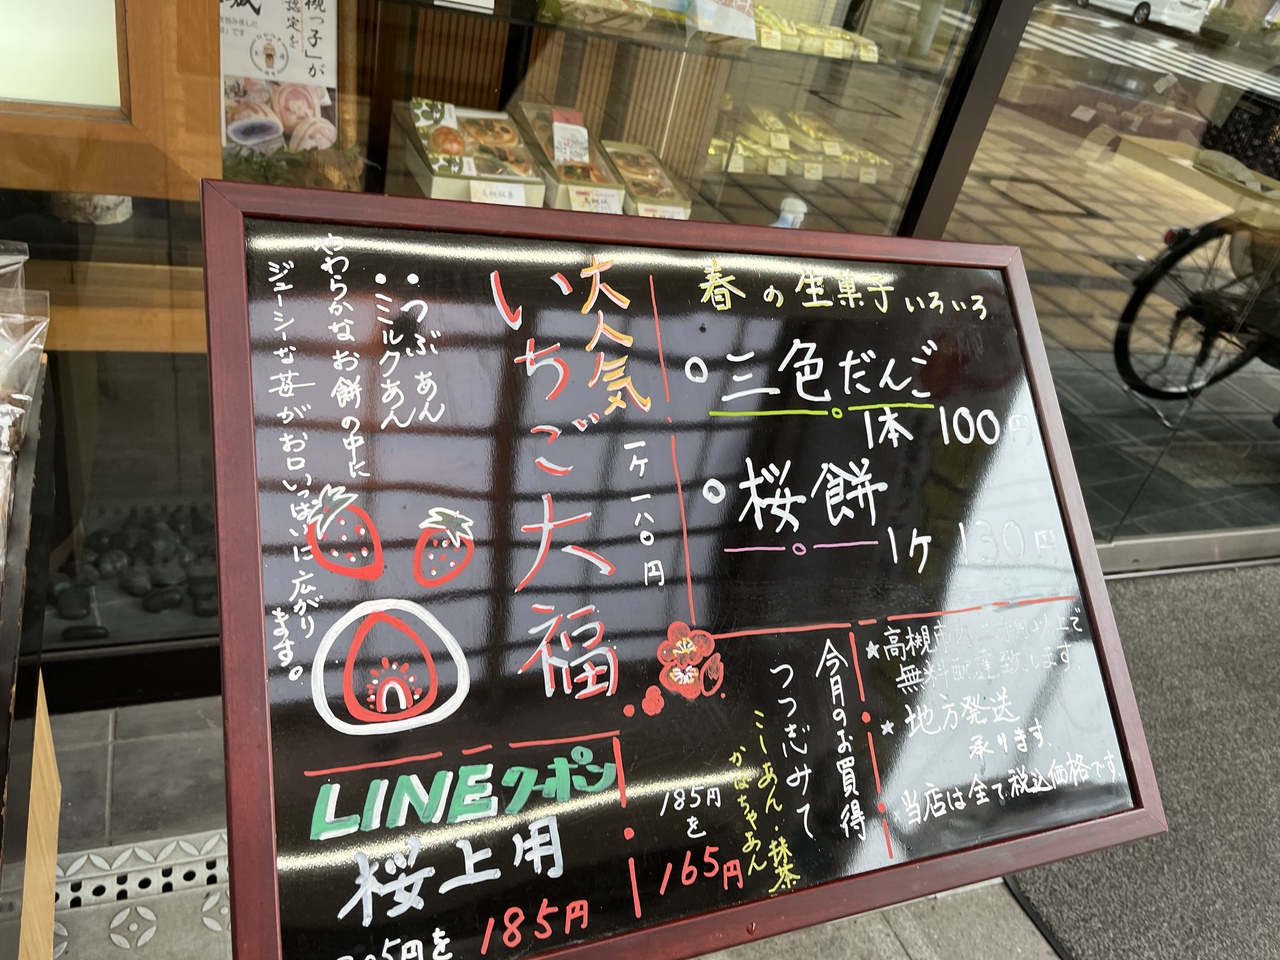 春の生菓子いろいろ
三色だんご
1本 100円
桜餅
1ヶ 130円
大人気
いちご大福
一ヶ一八〇円
・つぶあん
・ミルクあん
やわらかなお餅の中に
ジューシーな苺がお口いっぱいに広がり
ます。
LINEクーポン
桜上用
5円を 185円
今月のお買得
つつみて
こしあん・抹茶
かぼちゃあん
185円
を
165円
★高槻市
以上で
無料配達致します。
★地方発送
承ります。
★当店は全て税込価格です。